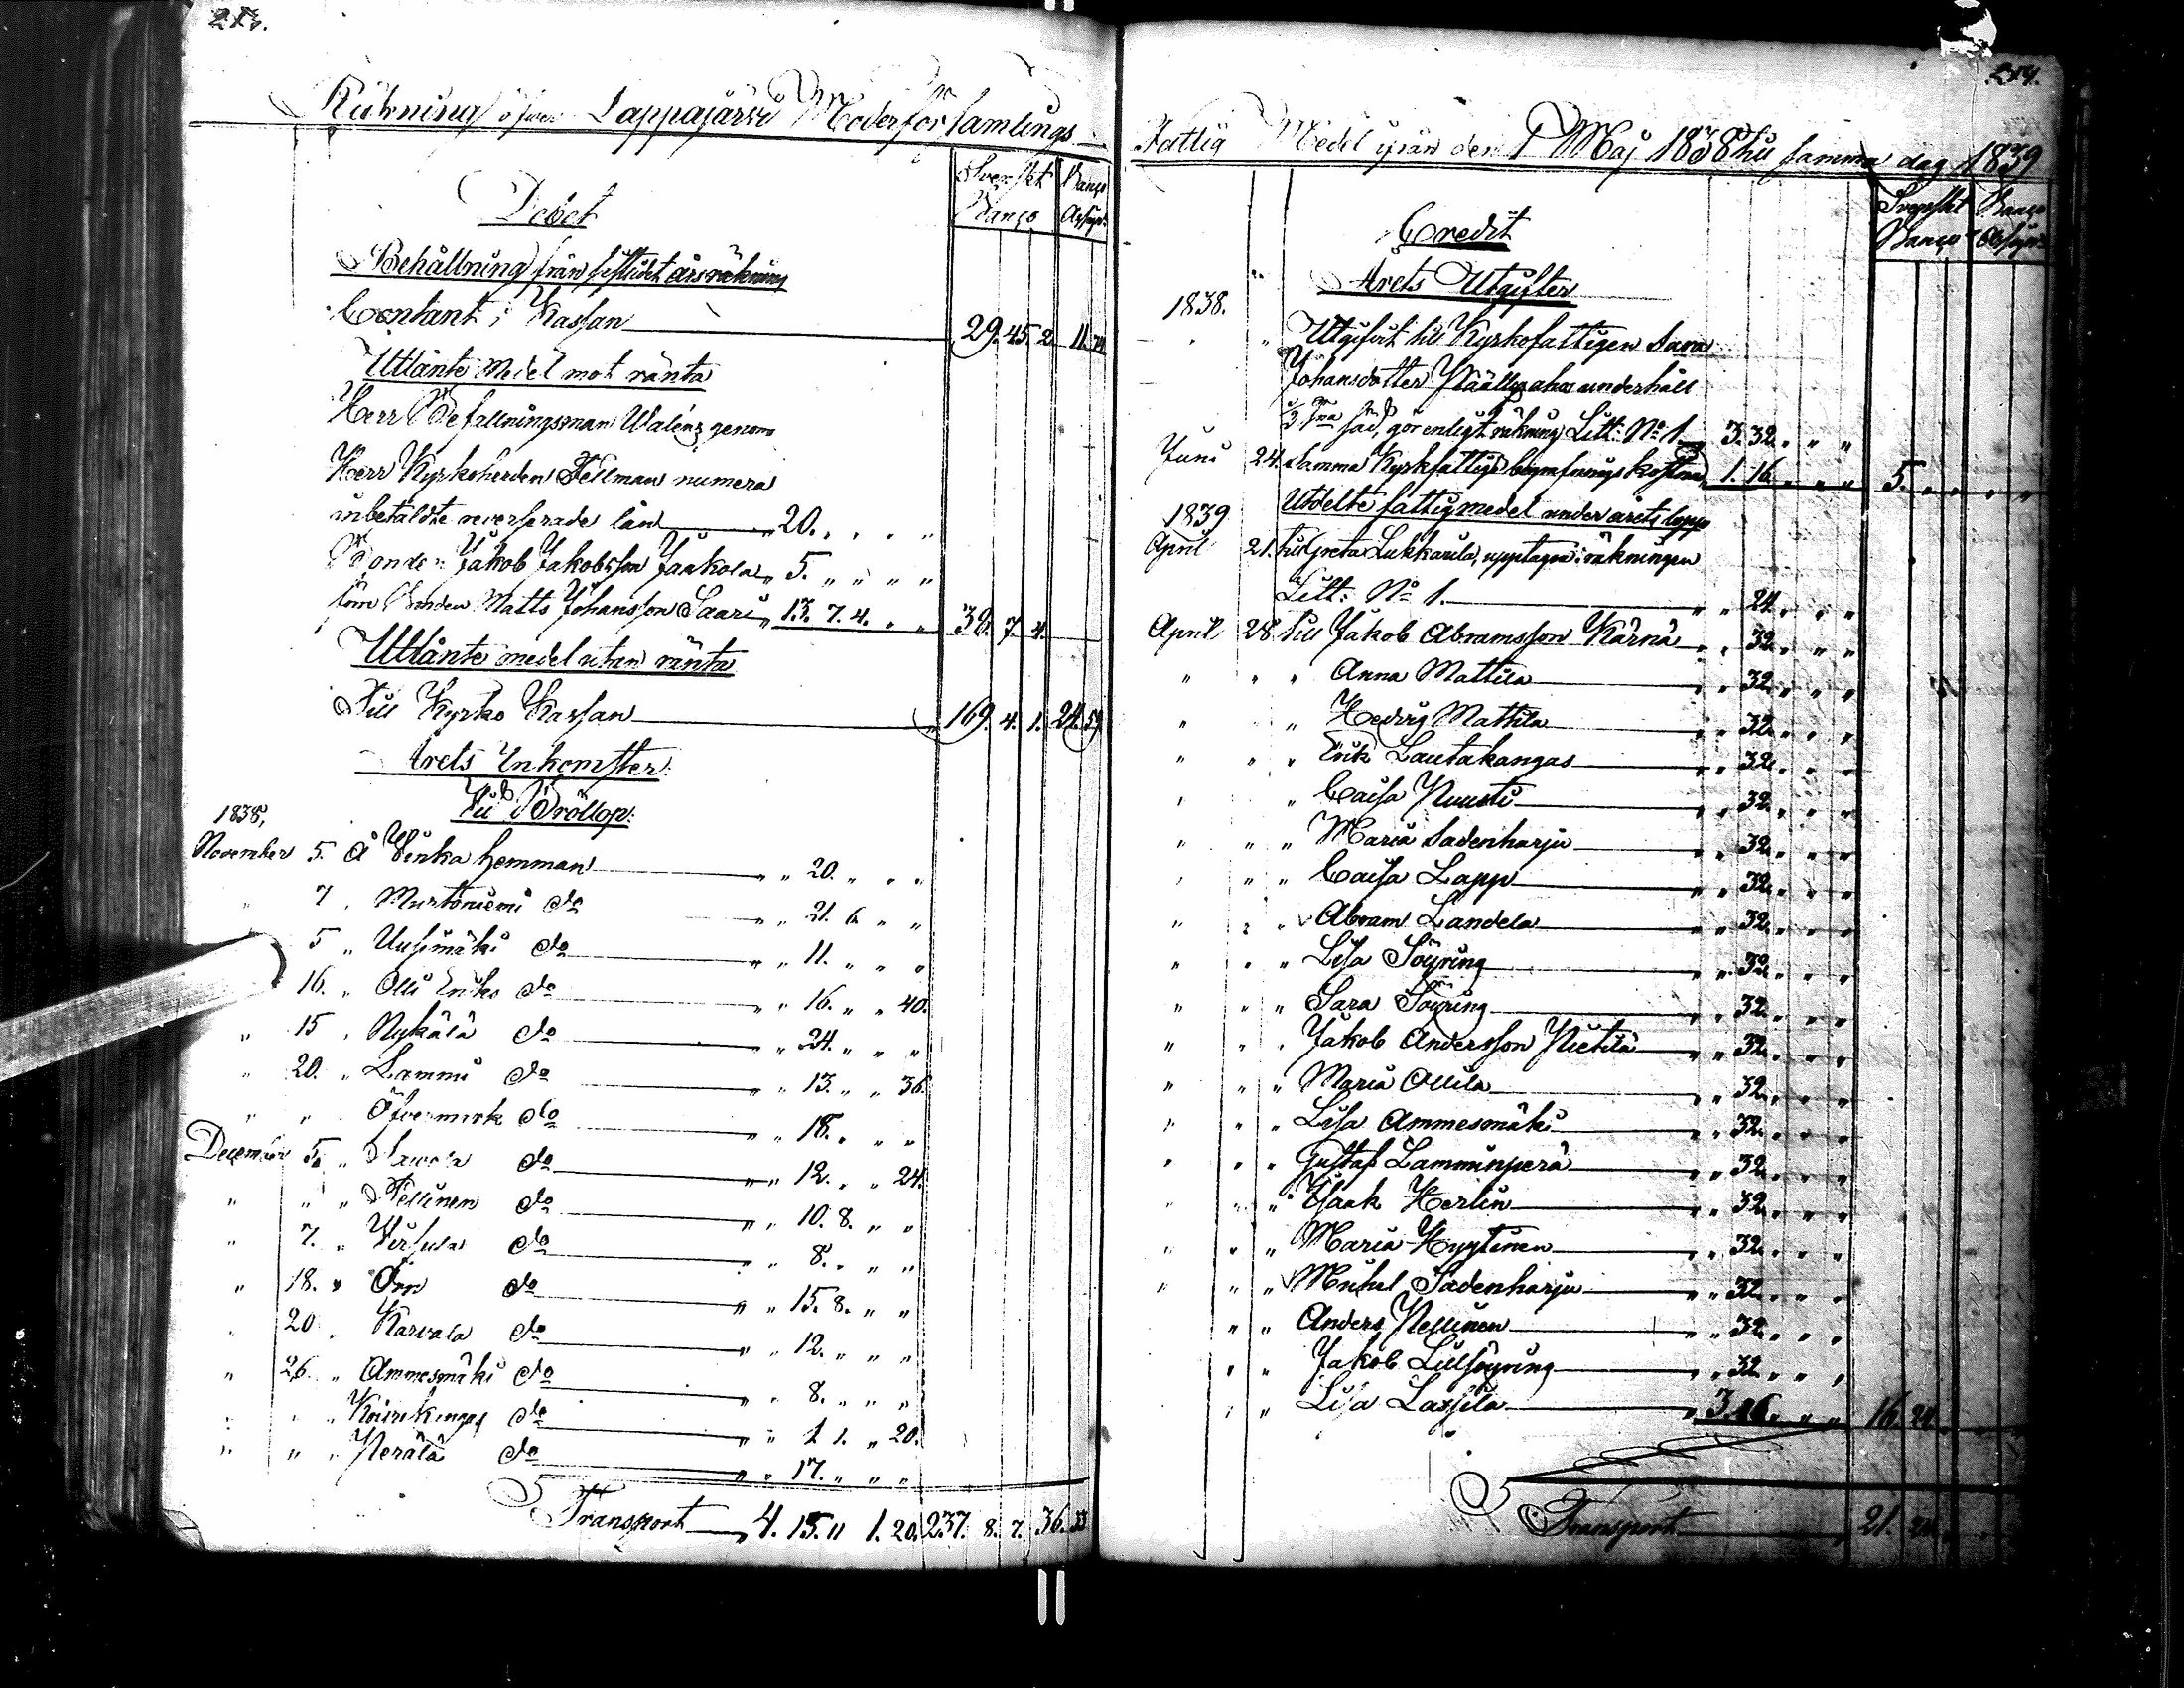 213.
Räkning öfver Lappajärvi Moderförsamlings
Svenskt Banco
Banco Assign:
Debet
Behållning från sistledet årsräkning
Contant i Kassan 29. 45. 2 11.
Utlånte Medel mot ränta
Herr Befallningsman Walénz genom
Herr Kyrkoherden Fellman numera
inbetaldte reverserade lån 20. " " " "
Bonden Jakob Jakobsson Jaakola " 5. " " " "
förre Bonden Matts Johansson Saari " 13. 7. 4. " " 38. 7. 4.
Utlånte medel utan ränta
Till Kyrko Kassan 169. 4. 1. 24. 59.
Årets Inkomster:
Vid Bröllop:
1838,
November 5. å Venka hemman " " 20. " " "
" 7 " Murtoniemi do " " 21. 6 " "
5 " Uusimäki do " " 11. " " "
16. " Olli Eriks do " " 16. " " 40.
" 15 " Nykälä do " " 24. " " "
" 20. " Lammi do " " 13. " " 36.
" " " Öfvermark do " " 18. " " "
December 5. " Savola do " " 12. " " 24.
" " " Tellinen do " " 10. 8. " "
" 7. " Virsula do " " 8. " " "
" 18. " Örn do " " 15. 8. " "
" 20 " Karvala do " " 12. " " "
" 26. " Ammesmäki do " " 8. " " "
" " " Koirikangas do " " 1 1. " 20.
" " " Nerälä do " " 17. " " "
Transport " 4. 15. 11 1. 20. 237. 8. 7. 36. 33
214.
Fattig Medel ifrån den 1 Maj 1838 till samma dag 1839
Svenskt Banco
Banco Assign:
Credit
Årets Utgifter
1838.
Utgifvit till Kyrkofattigen Sara
Johansdotter underhåll
gör enligt räkning Litt: No 1 3. 32. " " "
Juni 24. Samma Kyrkfattigs begrafnings kostnad 1. 16. " " " 5. " " " "
1839 Utdelte fattigmedel under årets lopp
April 21. till Greta Lukkarila, upptagen i räkningen
Litt: No 1. " " 24. " " "
April 28. till Jakob Abramsson Kärnä " " 32. " " "
" " " Anna Mattila " " 32. " " "
" " Hedvig Mattila " " 32. " " "
" " " Erik Lautakangas " " 32. " " "
" " Caisa Nuusti " " 32. " " "
" " " Maria Sadenharju " " 32. " " "
" " " Caisa Lapp " " 32. " " "
" " " Abram Landela " " 32. " " "
" " " Lisa Söyring " " 32. " " "
" " " Sara Söyring " " 32. " " "
" " " Jakob Andersson Pietilä " " 32. " " "
" " " Maria Ollila " " 32. " " "
" " " Lisa Ammesmäki " " 32. " " "
" " " Gustaf Lamminperä " " 32. " " "
" " " Isaak Herlin " " 32. " " "
" " " Maria Hyytinen " " 32. " " "
" " " Mickel Sadenharju " " 32. " " "
" " Anders Nellinen " " 32. " " "
" " Jakob Lillsöyring " " 32. " " "
" " Lisa Lassila " 3. 16. " " " 16. 24.
Transport 21. 24.